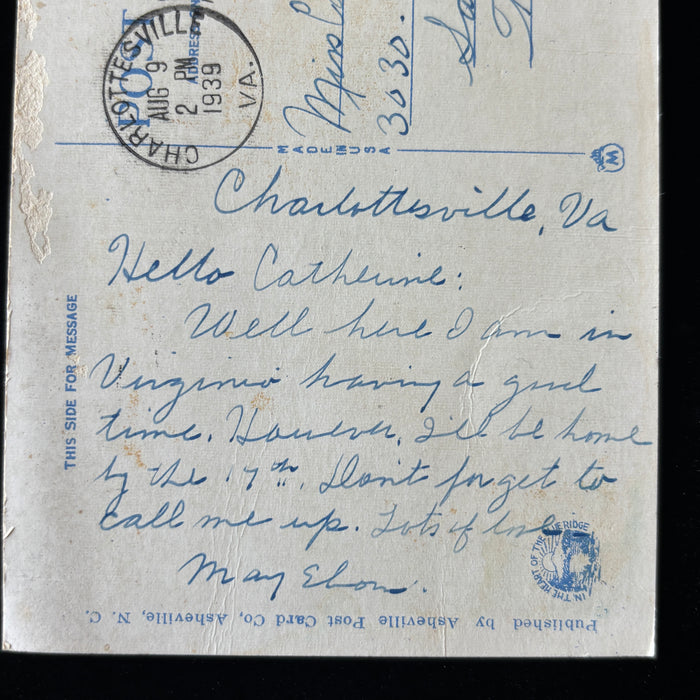 CHARLOTTESVILLE
AUG 9
2 PM
1939
VA.
POST
ADDRESS
Miss
3030.
MADE IN USA
M
THIS SIDE FOR MESSAGE
Charlottesville, Va
Hello Catherine:
Well here I am in
Virginia having a good
time. However, I'll be home
by the 17th. Don't forget to
call me up. Lots of love
May
IN THE HEART OF THE BLUE RIDGE
Published by Asheville Post Card Co, Asheville, N. C.